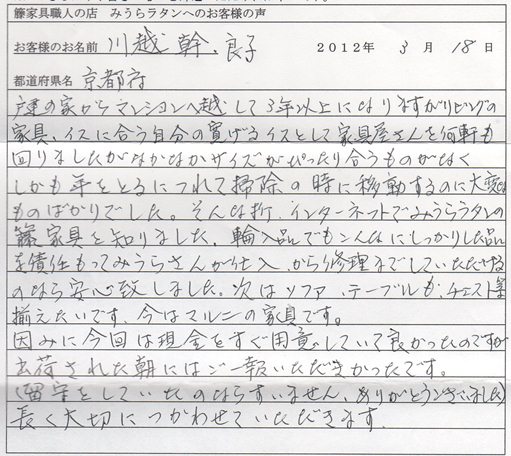 籐家具職人の店 みうらラタンへのお客様の声
お客様のお名前 川越 幹、良子 2012年 3月 18日
都道府県名 京都府
戸建の家からマンションへ越して3年以上になりますがリビングの
家具、イスに合う自分の寛げるイスとして家具屋さんを何軒も
回りましたがなかなかサイズがぴったり合うものがなく
しかも年をとるにつれて掃除の時に移動するのに大変な
ものばかりでした。そんな折、インターネットでみうらラタンの
籐家具を知りました、輸入品でもこんなにしっかりした品
を責任もってみうらさんが仕入、から修理までしていただける
のなら安心致しました。次はソファ、テーブルも、チェスト等
揃えたいです、今はマルニの家具です。
因みに今回は現金をすぐ用意していて良かったのですが
出荷された朝にはご一報いただきたかったです。
(留守をしていたのならすいません、ありがとうございました)
長く大切につかわせていただきます。